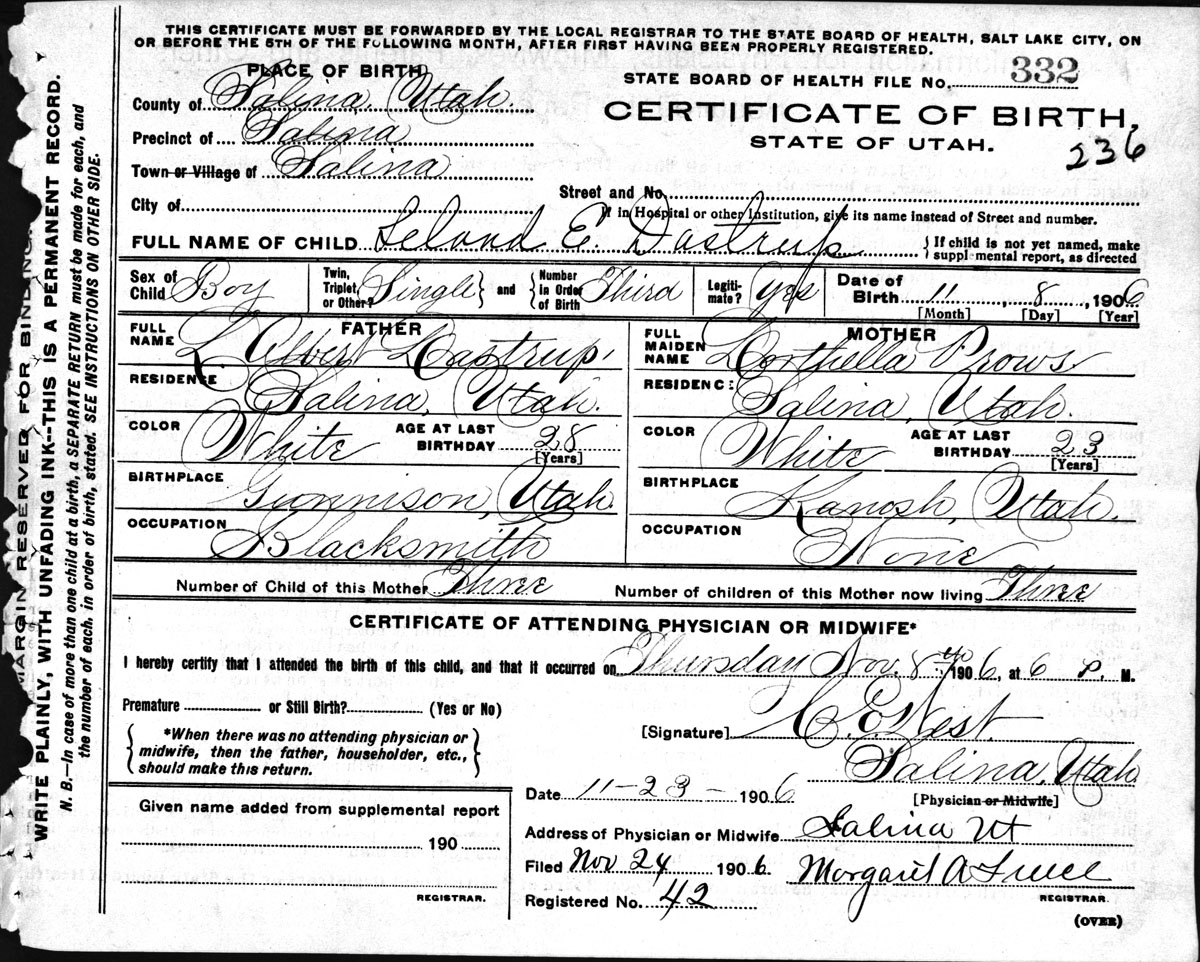 THIS CERTIFICATE MUST BE FORWARDED BY THE LOCAL REGISTRAR TO THE STATE BOARD OF HEALTH, SALT LAKE CITY, ON
OR BEFORE THE 5TH OF THE FOLLOWING MONTH, AFTER FIRST HAVING BEEN PROPERLY REGISTERED.
PLACE OF BIRTH
STATE BOARD OF HEALTH FILE No. 332
County of Salina, Utah.
CERTIFICATE OF BIRTH,
Precinct of Salina
STATE OF UTAH.
236
Town or Village of Salina
Street and No.
City of
If in Hospital or other Institution, give its name instead of Street and number.
FULL NAME OF CHILD Leland E. Dastrup
{If child is not yet named, make
supplemental report, as directed
Sex of Child Boy
Twin, Triplet, or Other? Single
} and {
Number in Order of Birth Third
Legiti-mate? Yes
Date of Birth 11, 8, 1906
[Month] [Day] [Year]
FATHER
FULL NAME L Albert Dastrup,
RESIDENCE Salina, Utah.
COLOR White AGE AT LAST BIRTHDAY 28
[Years]
BIRTHPLACE Gunnison, Utah.
OCCUPATION Blacksmith
MOTHER
FULL MAIDEN NAME Prows.
RESIDENCE: Salina, Utah.
COLOR White AGE AT LAST BIRTHDAY 23
[Years]
BIRTHPLACE Kanosh, Utah.
OCCUPATION None
Number of Child of this Mother Three Number of children of this Mother now living Three
CERTIFICATE OF ATTENDING PHYSICIAN OR MIDWIFE*
I hereby certify that I attended the birth of this child, and that it occurred on Thursday Nov. 8th 1906, at 6 P. M.
Premature or Still Birth? (Yes or No)
{*When there was no attending physician or
midwife, then the father, householder, etc.,
should make this return.}
[Signature] C. E. West.
Salina, Utah.
[Physician or Midwife]
Date 11-23- 1906
Given name added from supplemental report
190
REGISTRAR.
Address of Physician or Midwife Salina Ut
Filed Nov 24 1906 Margaret A
REGISTRAR.
Registered No. 42
(OVER)
MARGIN RESERVED FOR BINDING.
WRITE PLAINLY, WITH UNFADING INK--THIS IS A PERMANENT RECORD.
N. B.—In case of more than one child at a birth, a SEPARATE RETURN must be made for each, and
the number of each, in order of birth, stated. SEE INSTRUCTIONS ON OTHER SIDE.